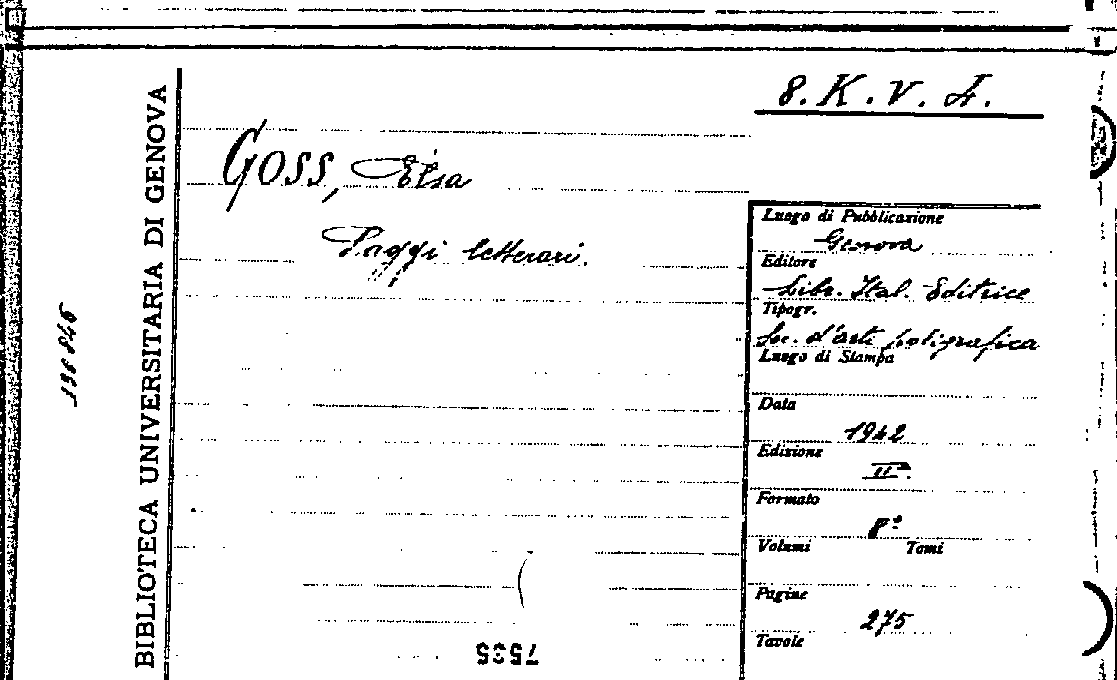 8. K. V. 4.
BIBLIOTECA UNIVERSITARIA DI GENOVA
GOSS, Elsa
Saggi letterari.
Luogo di Pubblicazione
Genova
Editore
Libr. Ital. Editrice
Tipogr.
Soc. d'arte poligrafica
Luogo di Stampa
Data
1942
Edizione
IIª.
Formato
8º
Volumi Tomi
Pagine
275
Tavole
7535